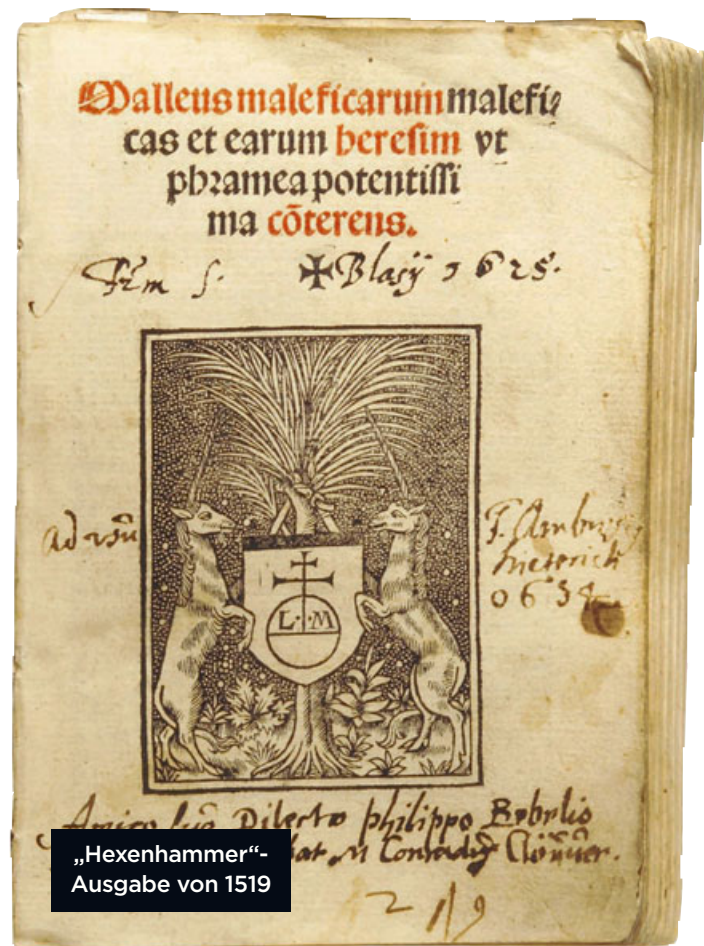 Malleus maleficarum malefi⸗
cas et earum heresim vt
phramea potentissi
ma cōterens.
✠ Blasij 1625.
ad vsū
L·M
Amico suo Dilecto philippo Bebelio
Conradus
„Hexenhammer“-
Ausgabe von 1519